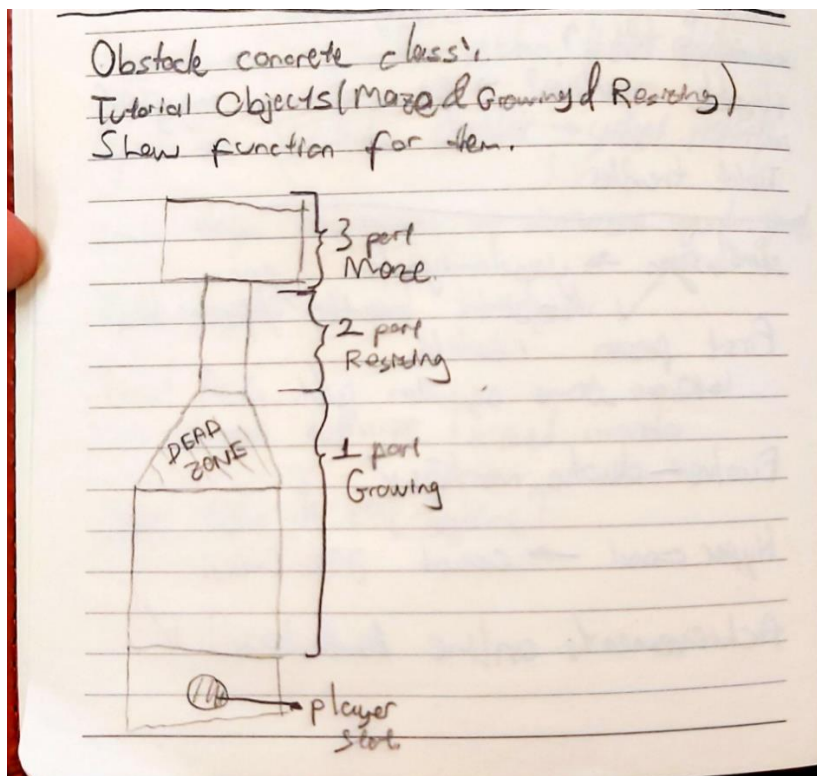 Obstacle concrete class.
Tutorial Objects (Maze & Growing & Resizing)
Show function for them.
3 part
Maze.
2 part
Resizing
DEAD
ZONE
1 part
Growing
player